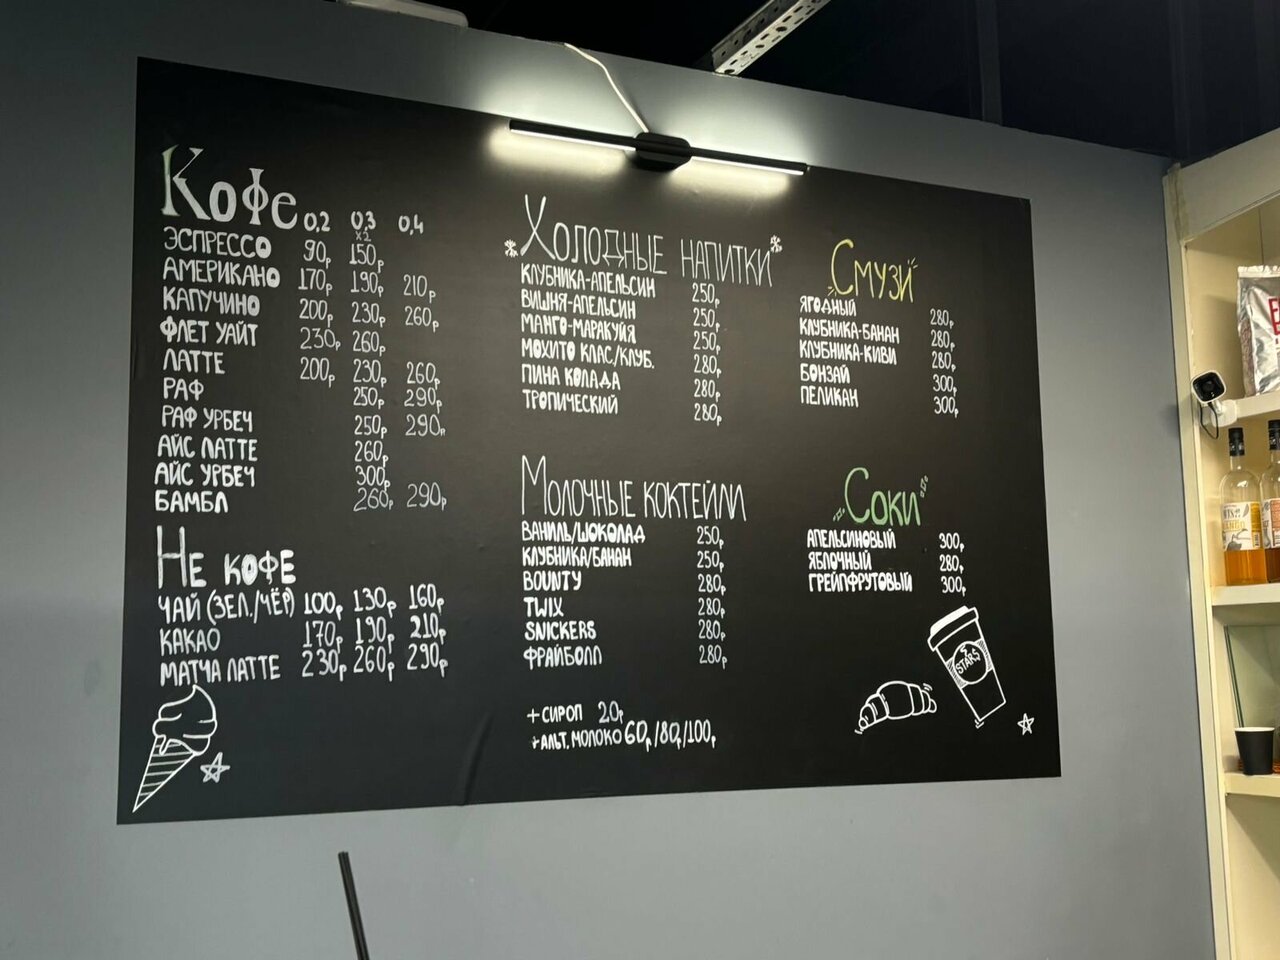 Кофе 0,2 0,3 0,4
x2
ЭСПРЕССО 90р 150р
АМЕРИКАНО 170р 190р 210р
КАПУЧИНО 200р 230р 260р
ФЛЕТ УАЙТ 230р 260р
ЛАТТЕ 200р 230р 260р
РАФ 250р 290р
РАФ УРБЕЧ 250р 290р
АЙС ЛАТТЕ 260р
АЙС УРБЕЧ 300р
БАМБЛ 260р 290р
НЕ КОФЕ
ЧАЙ (ЗЕЛ./ЧЁР) 100р 130р 160р
КАКАО 170р 190р 210р
МАТЧА ЛАТТЕ 230р 260р 290р
ХОЛОДНЫЕ НАПИТКИ
КЛУБНИКА-АПЕЛЬСИН 250р
ВИШНЯ-АПЕЛЬСИН 250р
МАНГО-МАРАКУЙЯ 250р
МОХИТО КЛАС./КЛУБ. 280р
ПИНА КОЛАДА 280р
ТРОПИЧЕСКИЙ 280р
МОЛОЧНЫЕ КОКТЕЙЛИ
ВАНИЛЬ/ШОКОЛАД 250р
КЛУБНИКА/БАНАН 250р
BOUNTY 280р
TWIX 280р
SNICKERS 280р
ФРАЙБОЛЛ 280р
+ СИРОП 20р
+ АЛЬТ. МОЛОКО 60р/80р/100р
СМУЗИ
ЯГОДНЫЙ 280р
КЛУБНИКА-БАНАН 280р
КЛУБНИКА-КИВИ 280р
БОНЗАЙ 300р
ПЕЛИКАН 300р
СОКИ
АПЕЛЬСИНОВЫЙ 300р
ЯБЛОЧНЫЙ 280р
ГРЕЙПФРУТОВЫЙ 300р
STARS